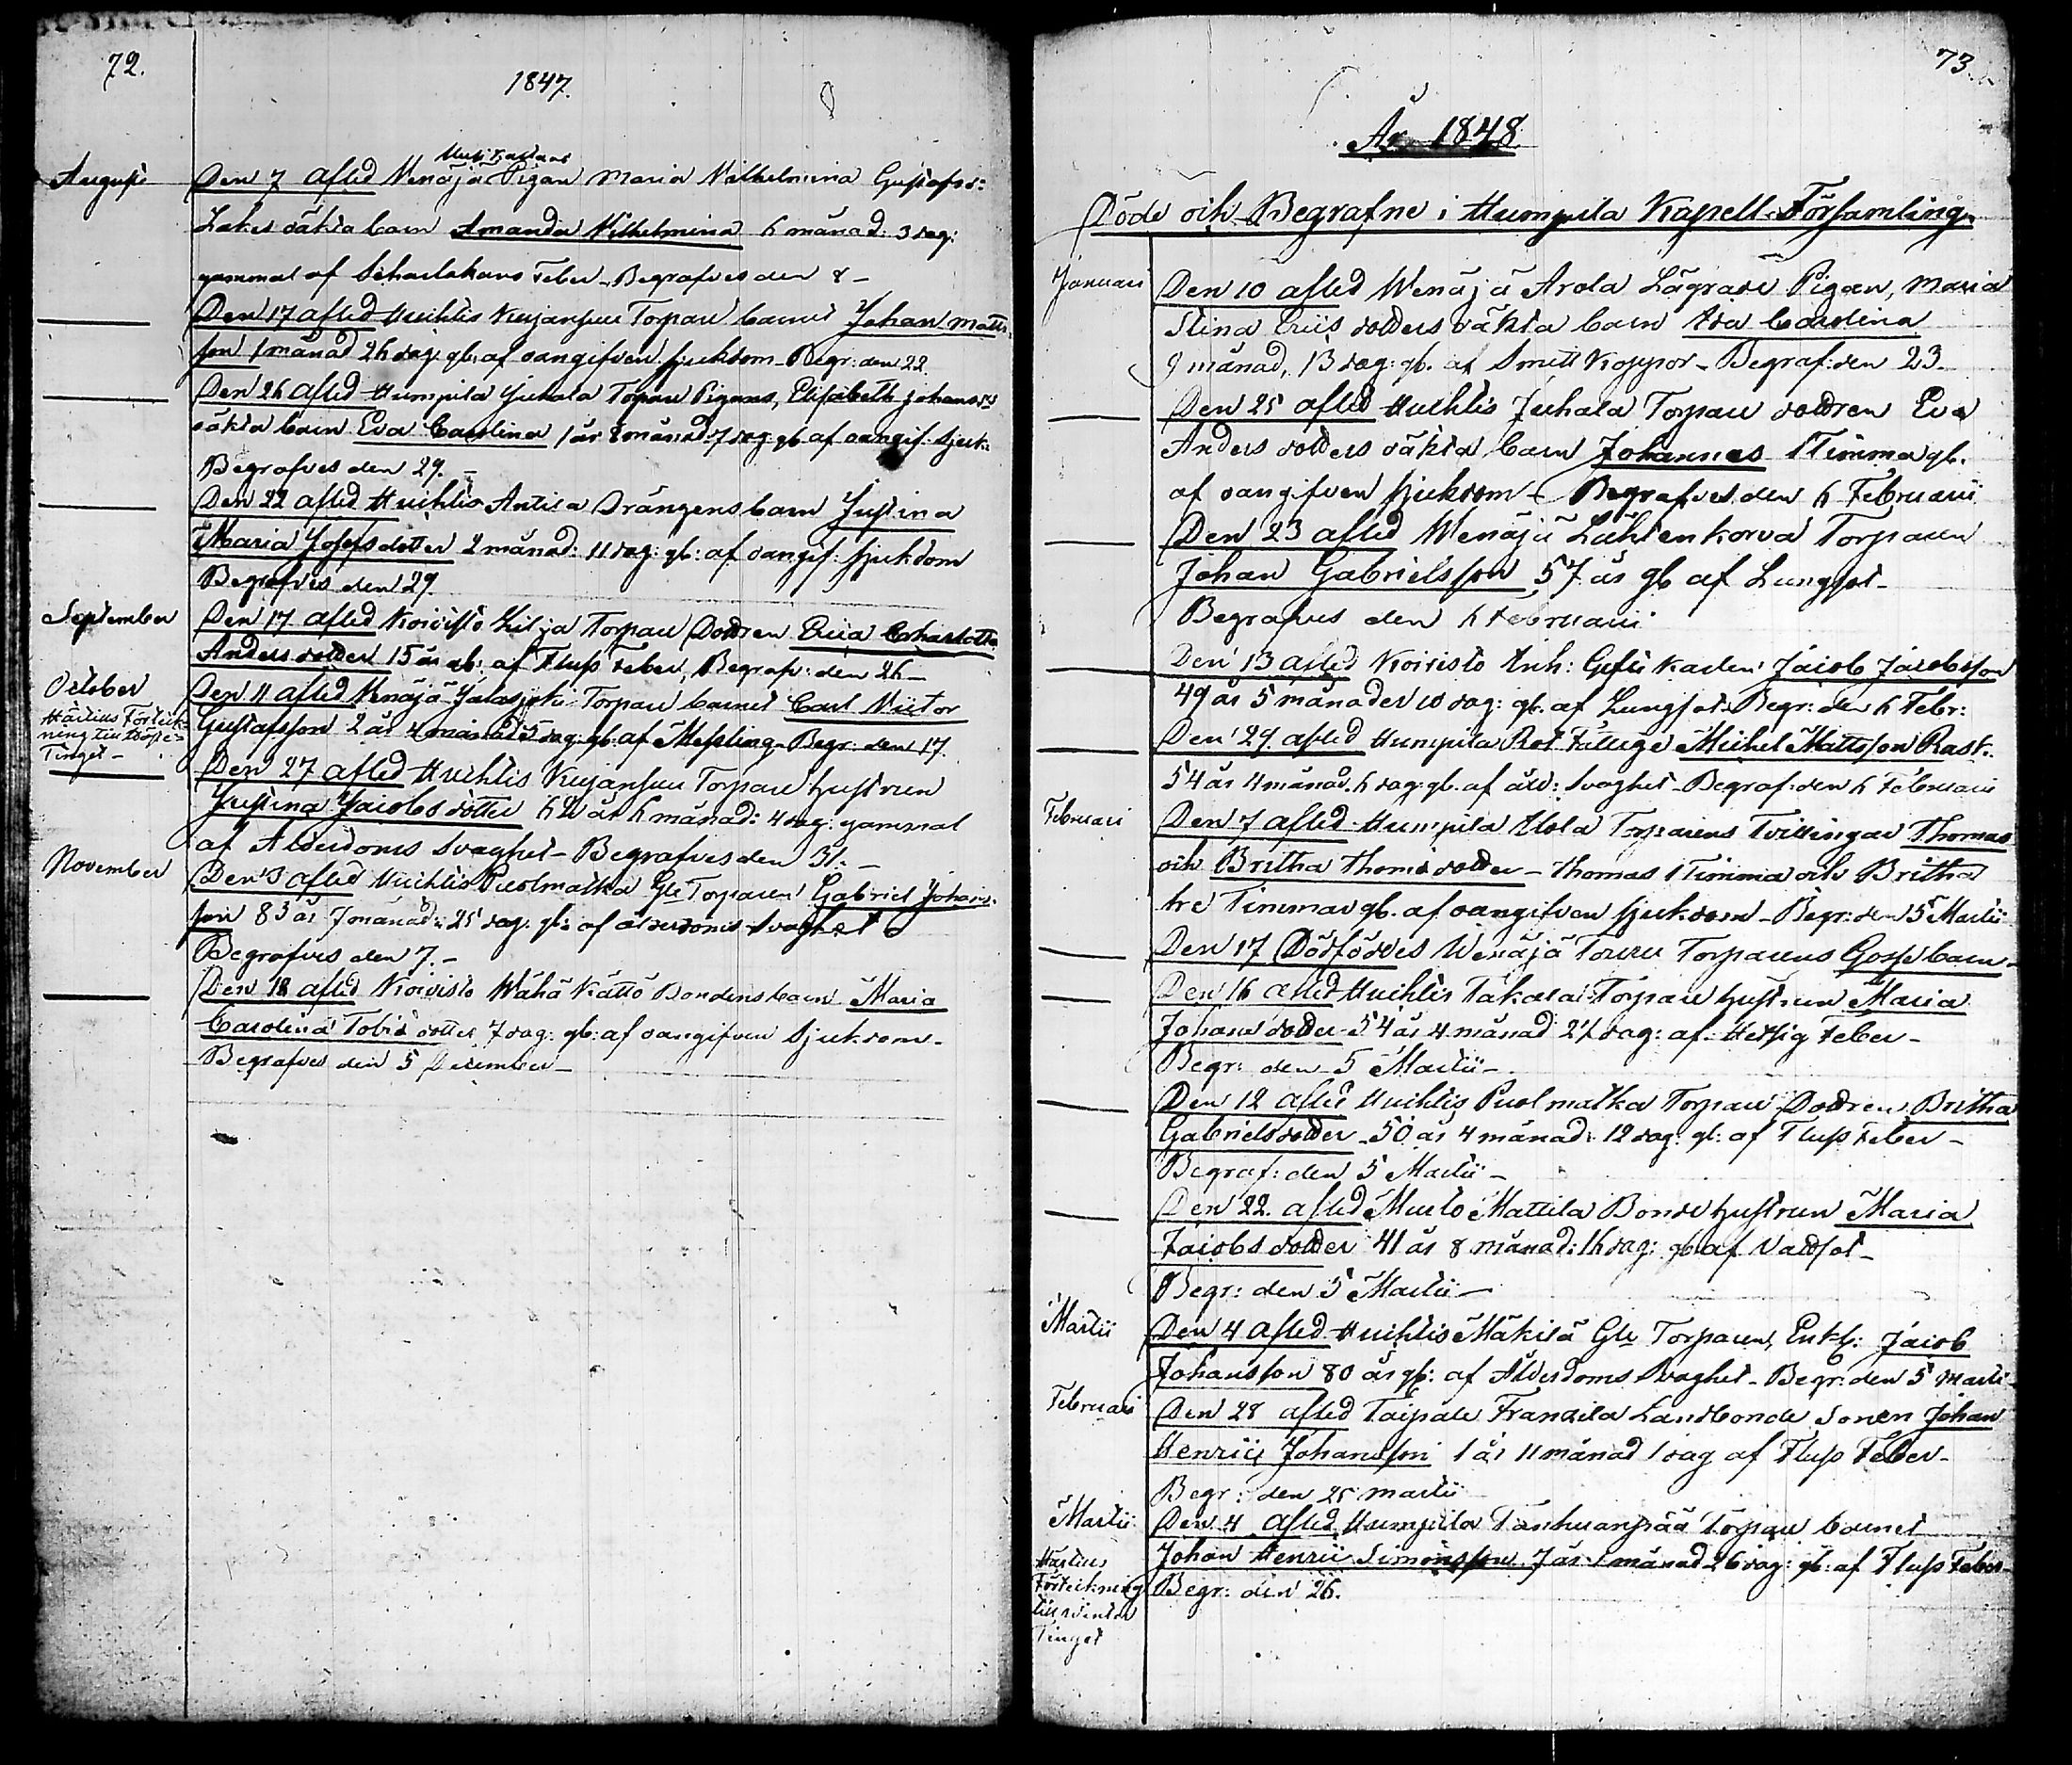 72.
1847.
Augusti
Den 7 afled Wenäjä Pigan Maria Wilhelmina Gustafsd:
oäkta barn Amanda Wilhelmina 6 månad: 3 dag:
gammal af Scharlakans Feber - Begrofves den 8 -
Den 17 afled Huihtis Kujansuu Torpare barnet Johan Matts-
son 1 månad 26 dag: gl: af oangifven sjukdom - Begr: den 22.
Den 26 afled Humpila Juhala Torpare Pigans, Elisabeth Johansd:
oäkta barn Eva Carolina 1 år 8 månad: 7 dag: gl: af oangif. Sjuk:
Begrofves den 29. -
Den 22 afled Huihtis Antila Drängens barn Justina
Maria Josefsdotter 2 månad: 11 dag: gl: af oangif: sjukdom
Begrofves den 29.
September
Den 17 afled Koivisto Lilja Torpare Dottren Eva Charlotta
Andersdotter 15 år gl: af Fluss Feber, Begrafv: den 26 -
October
Den 11 afled Wenäjä Torpare barnet Carl Victor
Gustafsson 2 år 4 månad: 5 dag: gl: af Messling - Begr: den 17.
Härtills Förteck-
ning till Höste-
Tinget -
Den 27 afled Huihtis Kujansuu Torpare hustrun
Justina Jacobsdotter 62 år 6 månad: 4 dag: gammal
af Ålderdoms Svaghet - Begrofves den 31. -
November
Den 3 afled Huihtis Puolmatka Gle Torparen Gabriel Johans-
son 83 år 7 månad: 25 dag: gl: af ålderdoms Svaghet
Begrofves den 7. -
Den 18 afled Koivisto Wähä Kättö Bondens barn Maria
Carolina Tobiedotter 7 dag: gl: af oangifven Sjukdom -
Begrofves den 5 December -
73.
År 1848.
Döde och Begrafne i Humpila Kapell-Församling.
Januari
Den 10 afled Wenäjä Arola Lägrare Pigan, Maria
Stina Ericsdotters oäkta barn Eva Carolina
9 månad, 13 dag: gl. af Smitt Koppor - Begraf: den 23 -
Den 25 afled Huihtis Juhala Torpare dottren Eva
Anders dotters oäkta barn Johannes 1 Timma gl.
af oangifven sjukdom - Begrafves den 6 Februarii
Den 23 afled Wenäjä Lähtenkorva Torparen
Johan Gabrielsson 57 år gl af Lungsot -
Begrafves den 6 Februarii
Den 13 afled Koivisto Enk: Jacob Jacobsson
49 år 5 månader 10 dag: gl. af Lungsot - Begr: den 6 Febr:
Den 29 afled Humpila Rot Fattige Michel Mattsson Rask.
54 år 4 månad. 6 dag: gl. af åld: Svaghet - Begraf: den 6 Februarii
Februari
Den 7 afled Humpila Torparens Tvillingar Thomas
och Britha Thomasdotter - Thomas 1 Timma och Britha
tre Timmar gl. af oangifven sjukdom - Begr: den 5 Martii
Den 17 Dödföddes Wenäjä Torparens Gosse barn -
Den 16 afled Huihtis Takala Torpare hustrun Maria
Johansdotter 54 år 4 månad 21 dag: af Hetsig Feber -
Begr: den 5 Martii -
Den 12 afled Huihtis Puolmatka Torpare Dottren Britha
Gabrielsdotter 50 år 4 månad: 12 dag: gl: af Fluss Feber -
Begraf: den 5 Martii -
Den 22. afled Murto Mattila Bonde hustrun Maria
Jacobsdotter 41 år 8 månad: 16 dag: gl: af Vattsot -
Begr: den 5 Martii -
Martii
Den 4 afled Huihtis Mäkilä Gle Torparen, Enkl: Jacob
Johansson 80 år gl: af Ålderdoms Svaghet - Begr: den 5 Martii
Februari
Den 28 afled Taipale Franzila Landbonde Sonen Johan
Henric Johansson 1 år 11 månad 1 dag af Fluss Feber -
Begr: den 25 Martii
Martii
Den 4 afled Humpila Tanhuanpää Torpare barnet
Johan Henric Simonsson 7 år 1 månad 26 dag: gl: af Fluss Feber -
Härtills
Förteckning
till Winter
Tinget
Begr: den 26.